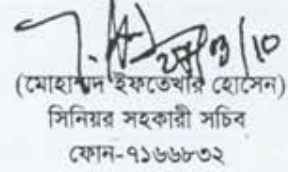 ২৫/০১/১০
(মোহাম্মদ ইফতেখার হোসেন)
সিনিয়র সহকারী সচিব
ফোন-৭১৬৬৮৩২